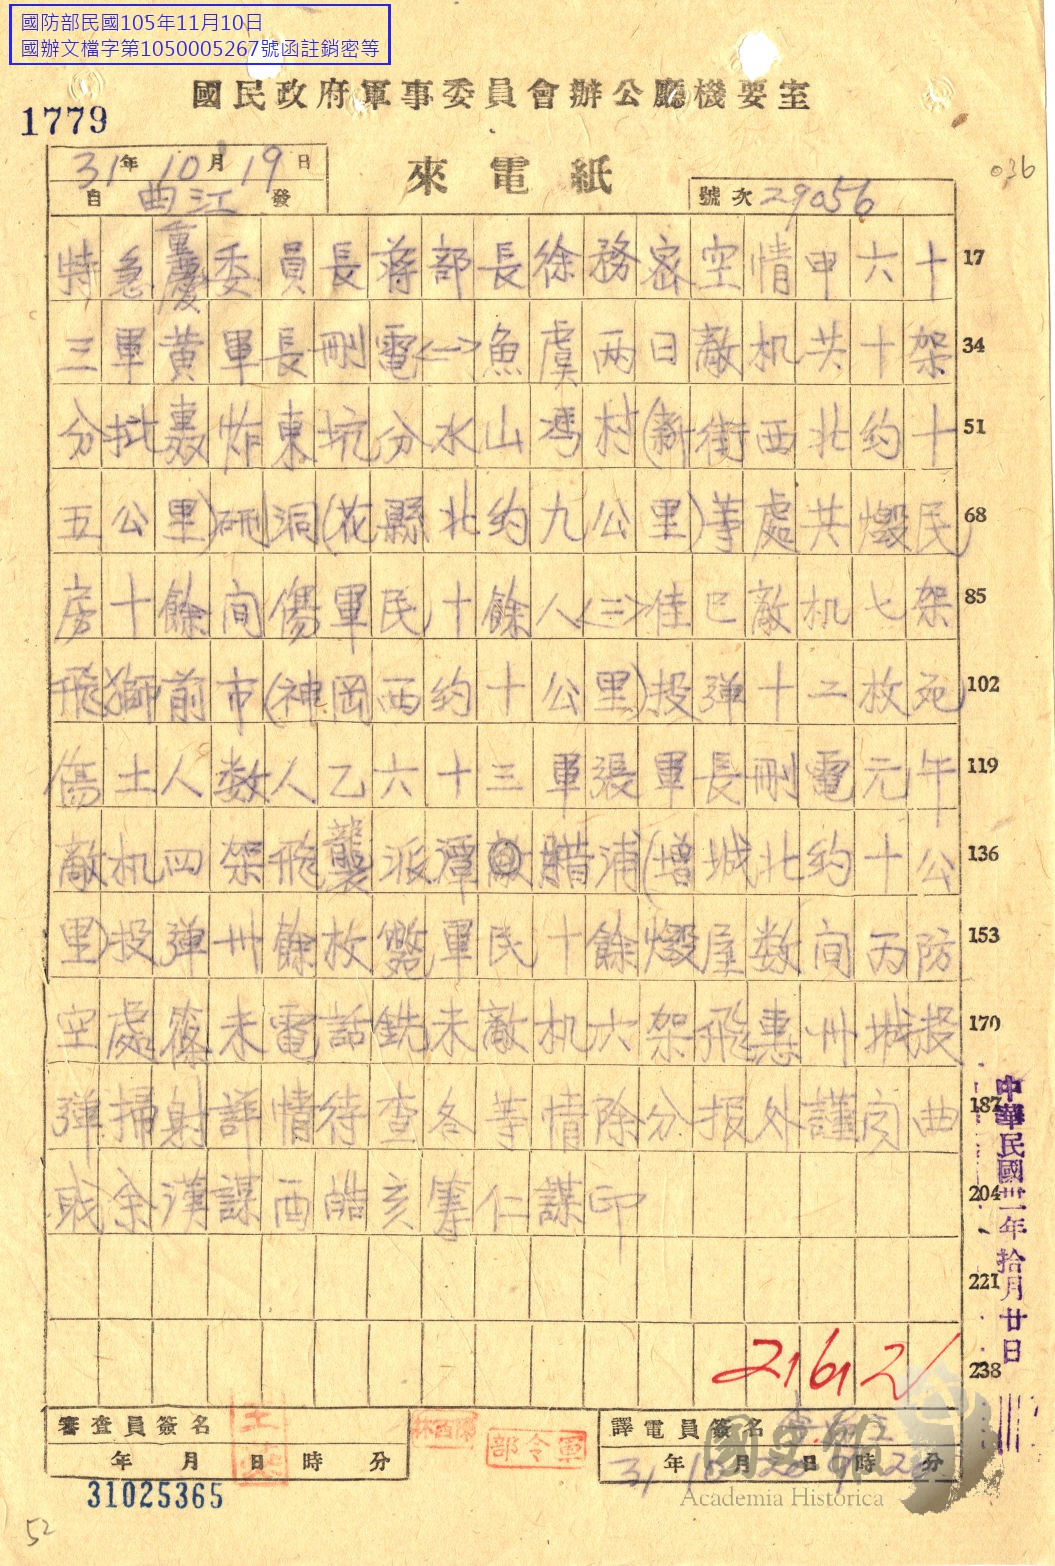 國防部民國105年11月10日
國辦文檔字第1050005267號函註銷密等
國民政府軍事委員會辦公廳機要室
1779
31年10月19日
來電紙
036
自曲江發
號次29056
特急重慶委員長蔣部長徐務密空情甲六十 17
三軍黃軍長刪電<一>魚虞兩日敵机共十架 34
分批轟炸東坑分水山灣村(新街西北約十 51
五公里)硏洞(花縣北約九公里)等處共燬民 68
房十餘間傷軍民十餘人<二>佳巳敵机七架 85
飛獅前市(神岡西約十公里)投彈十二枚死 102
傷土人数人乙六十三軍張軍長刪電元午 119
敵机四架飛襲派潭腊浦(增城北約十公 136
里)投彈卅餘枚斃軍民十餘燬屋数間丙防 153
空處篠未電話銑未敵机六架飛惠州城投 170
彈掃射詳情待查各等情除分报外謹聞曲 187
余漢謀酉皓亥籌仁謀印 204
221
21612 238
中華民國卅一年拾月廿日
審查員簽名
年 月 日 時 分
軍令部
譯電員簽名
31年10月20日9時 分
31025365
國史館
Academia Historica
52